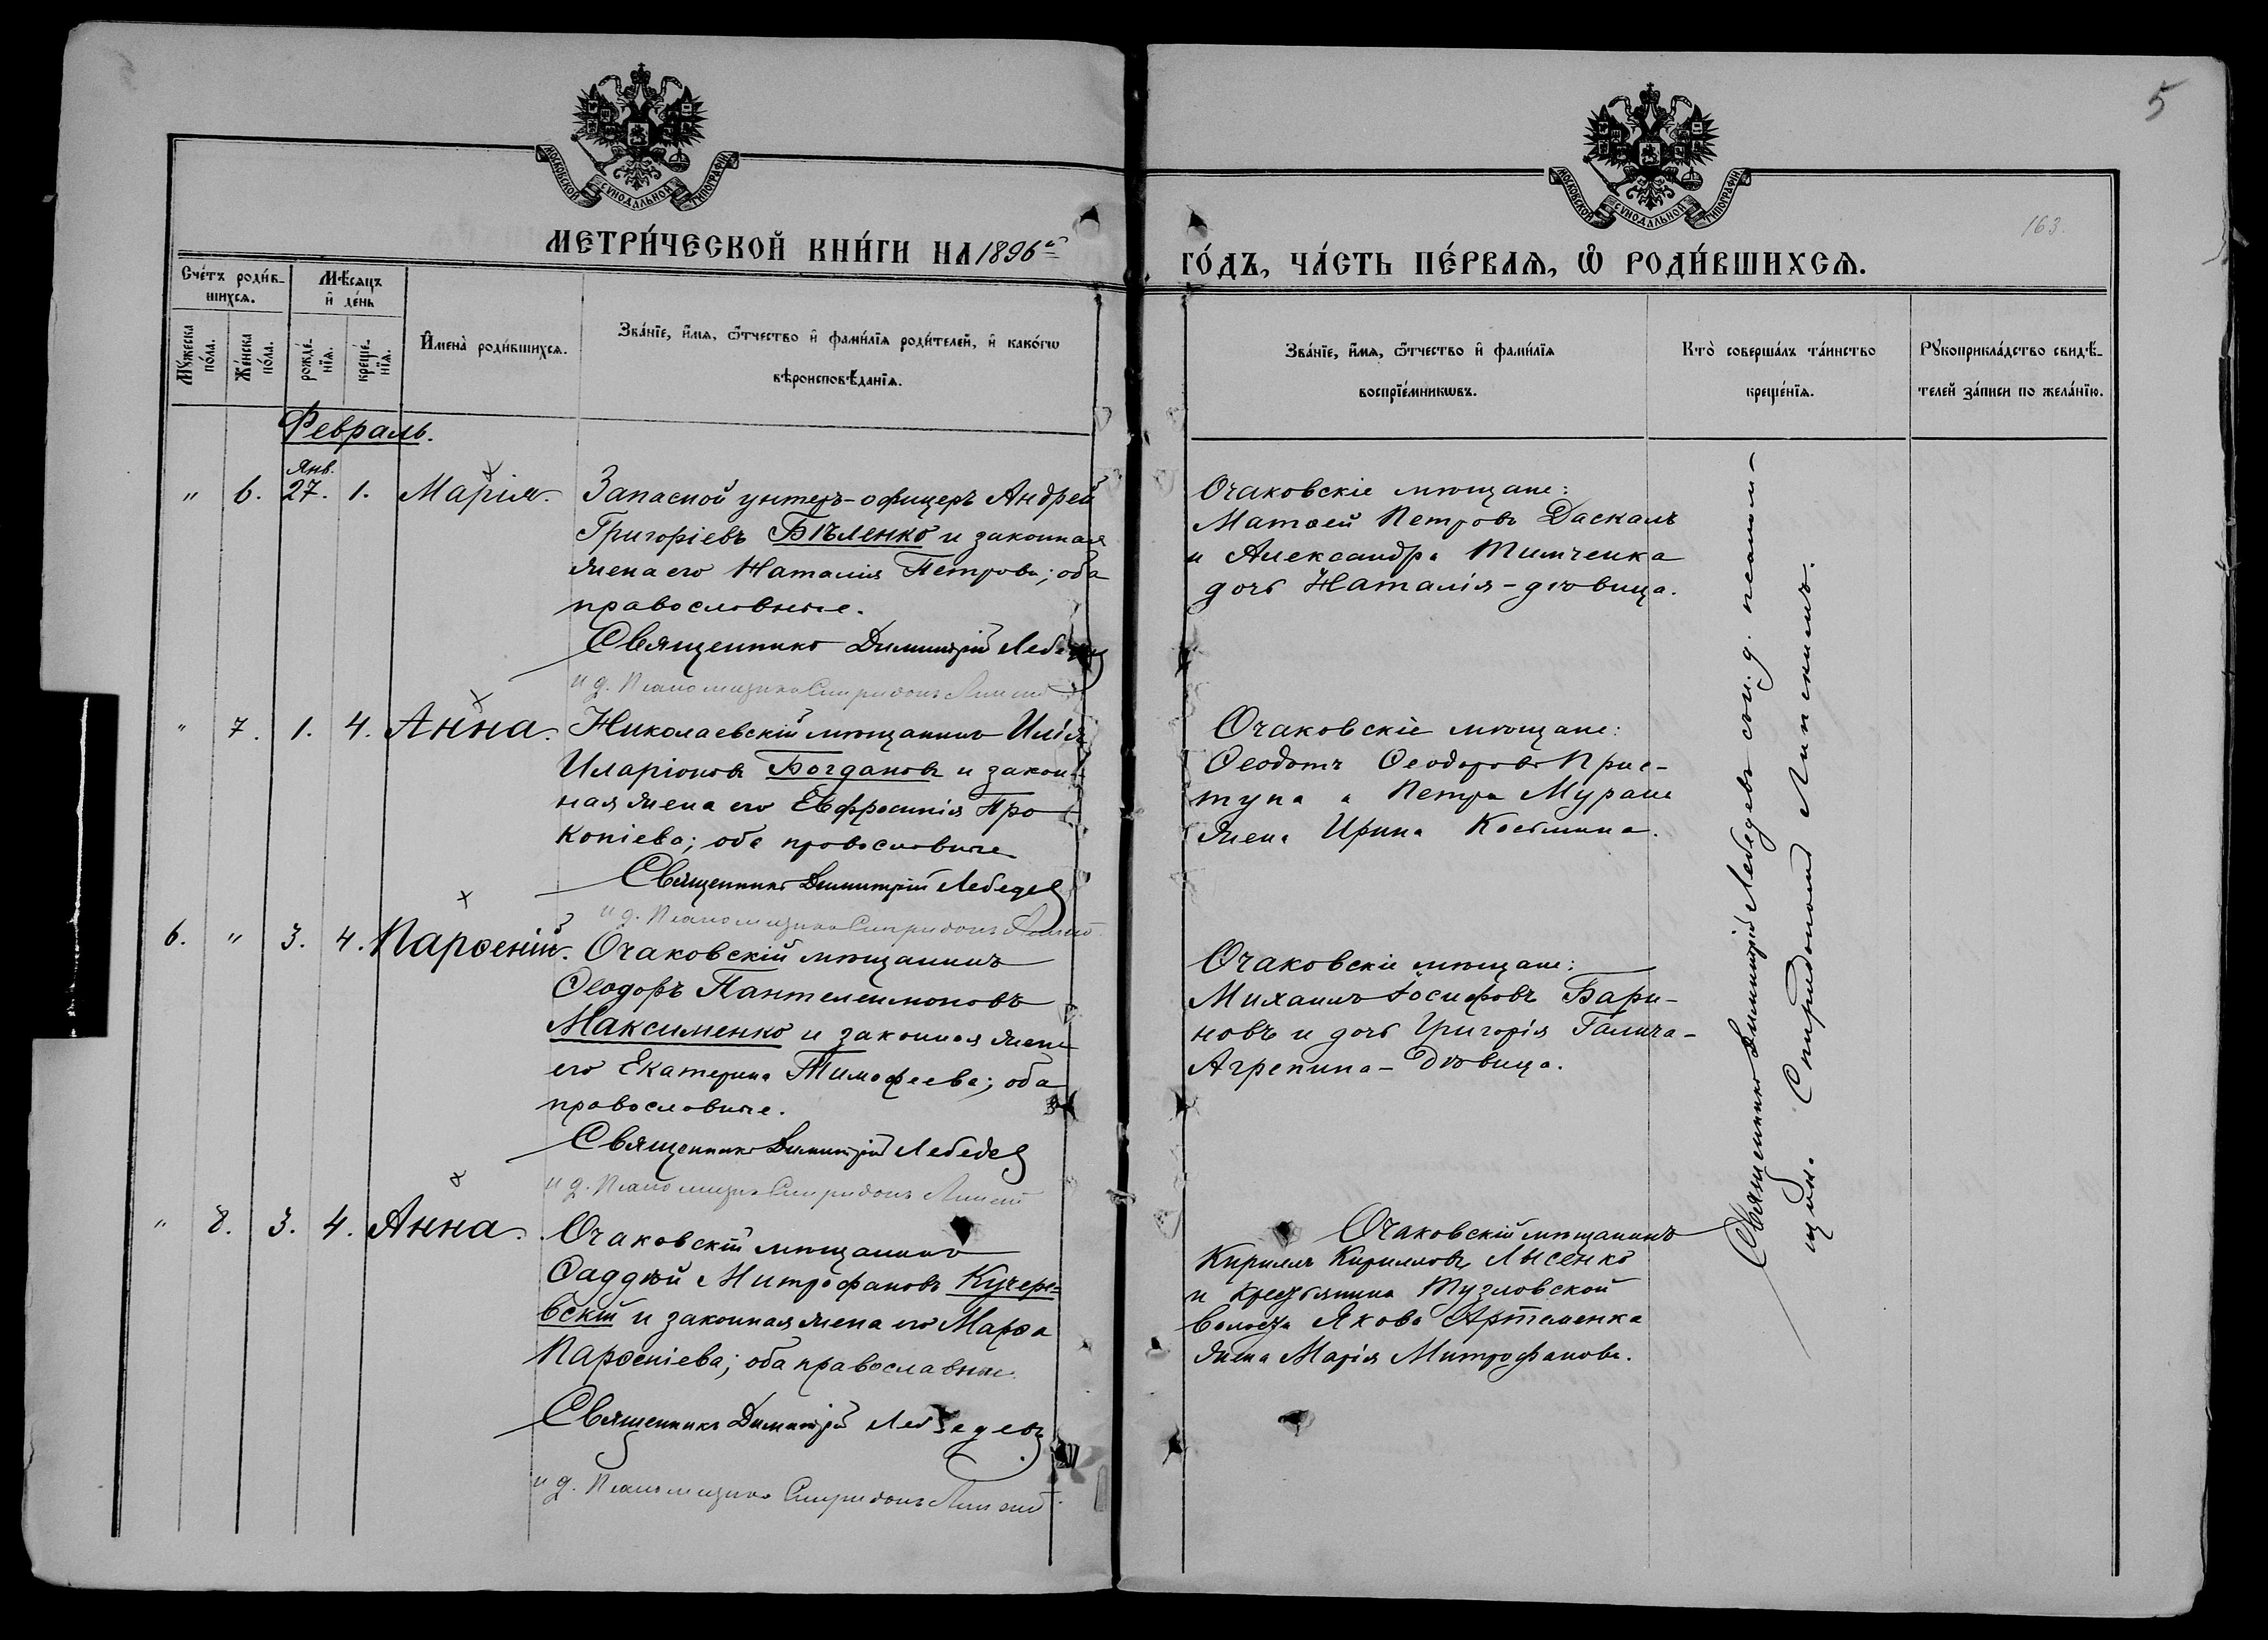 5
163.
МОСКОВСКОЙ СУНОДАЛЬНОЙ ТИПОГРАФІИ
МОСКОВСКОЙ СУНОДАЛЬНОЙ ТИПОГРАФІИ
МЕТРИ́ЧЕСКОЙ КНИ́ГИ НА 1896й
ГО́ДЪ, ЧА́СТЬ ПЕ́РВАЯ, Ѡ РОДИ́ВШИХСЯ.
Сче́тъ роди́в-
шихся.
Мѣ́сяцъ
и де́нь
Му́жеска
по́ла.
Же́нска
по́ла.
рожде́-
нїя.
креще́-
нїя.
Имена̀ роди́вшихся.
Зва́нїе, и́мя, ѻ҆́тчество и фами́лїя роди́телей, и како́гѡ
вѣроисповѣ́данїя.
Зва́нїе, и́мя, ѻ҆́тчество и фами́лїя
воспрїе́мникѡвъ.
Кто̀ соверша́лъ та́инство
креще́нїя.
Рꙋкоприкла́дство свидѣ́-
телей за́писи по жела́нїю.
Февраль.
Янв.
" 6. 27. 1. Марія.
Запасной унтеръ-офицеръ Андрей
Григоріевъ Бѣленко и законная
жена его Наталія Петрова; оба
православные.
Священникъ Димитрій Лебедевъ
и д. Псаломщика Спиридонъ
Очаковскіе мѣщане:
Матѳей Петровъ Даскалъ
и Александра Тимченка
дочь Наталія-дѣвица.
" 7. 1. 4. Анна.
Николаевскій мѣщанинъ Илія
Иларіоновъ Богдановъ и закон-
ная жена его Евфросинія Про
копіева; оба православные
Священникъ Димитрій Лебедев
и д. Псаломщика Спиридонъ
Очаковскіе мѣщане:
Ѳеодотъ Ѳеодоровъ Прис-
тупа и Петра
жена Ирина Косьмина.
6. " 3. 4. Парѳеній.
Очаковскій мѣщанинъ
Ѳеодоръ Пантелеимоновъ
Максименко и законная жена
его Екатерина Тимофеева; оба
православные.
Священникъ Димитрій Лебедев
и д. Псаломщика Спиридонъ
Очаковскіе мѣщане:
Михаилъ Іосифовъ Бари-
новъ и дочь Григорія Галича-
Агрепина-дѣвица.
" 8. 3. 4. Анна.
Очаковскій мѣщанинъ
Ѳаддѣй Митрофановъ Кучере=
вскій и законная жена его Марѳа
Парѳеніева; оба православные.
Священникъ Димитрій Лебедевъ
и д. Псаломщика Спиридонъ
Очаковскій мѣщанинъ
Кириллъ Кирилловъ Лысенко
и крестьянина Тузловской
волости Якова Артеменка
жена Марія Митрофанова.
Священникъ Димитрій Лебедевъ съ и. д. псалом-
щика Спиридономъ